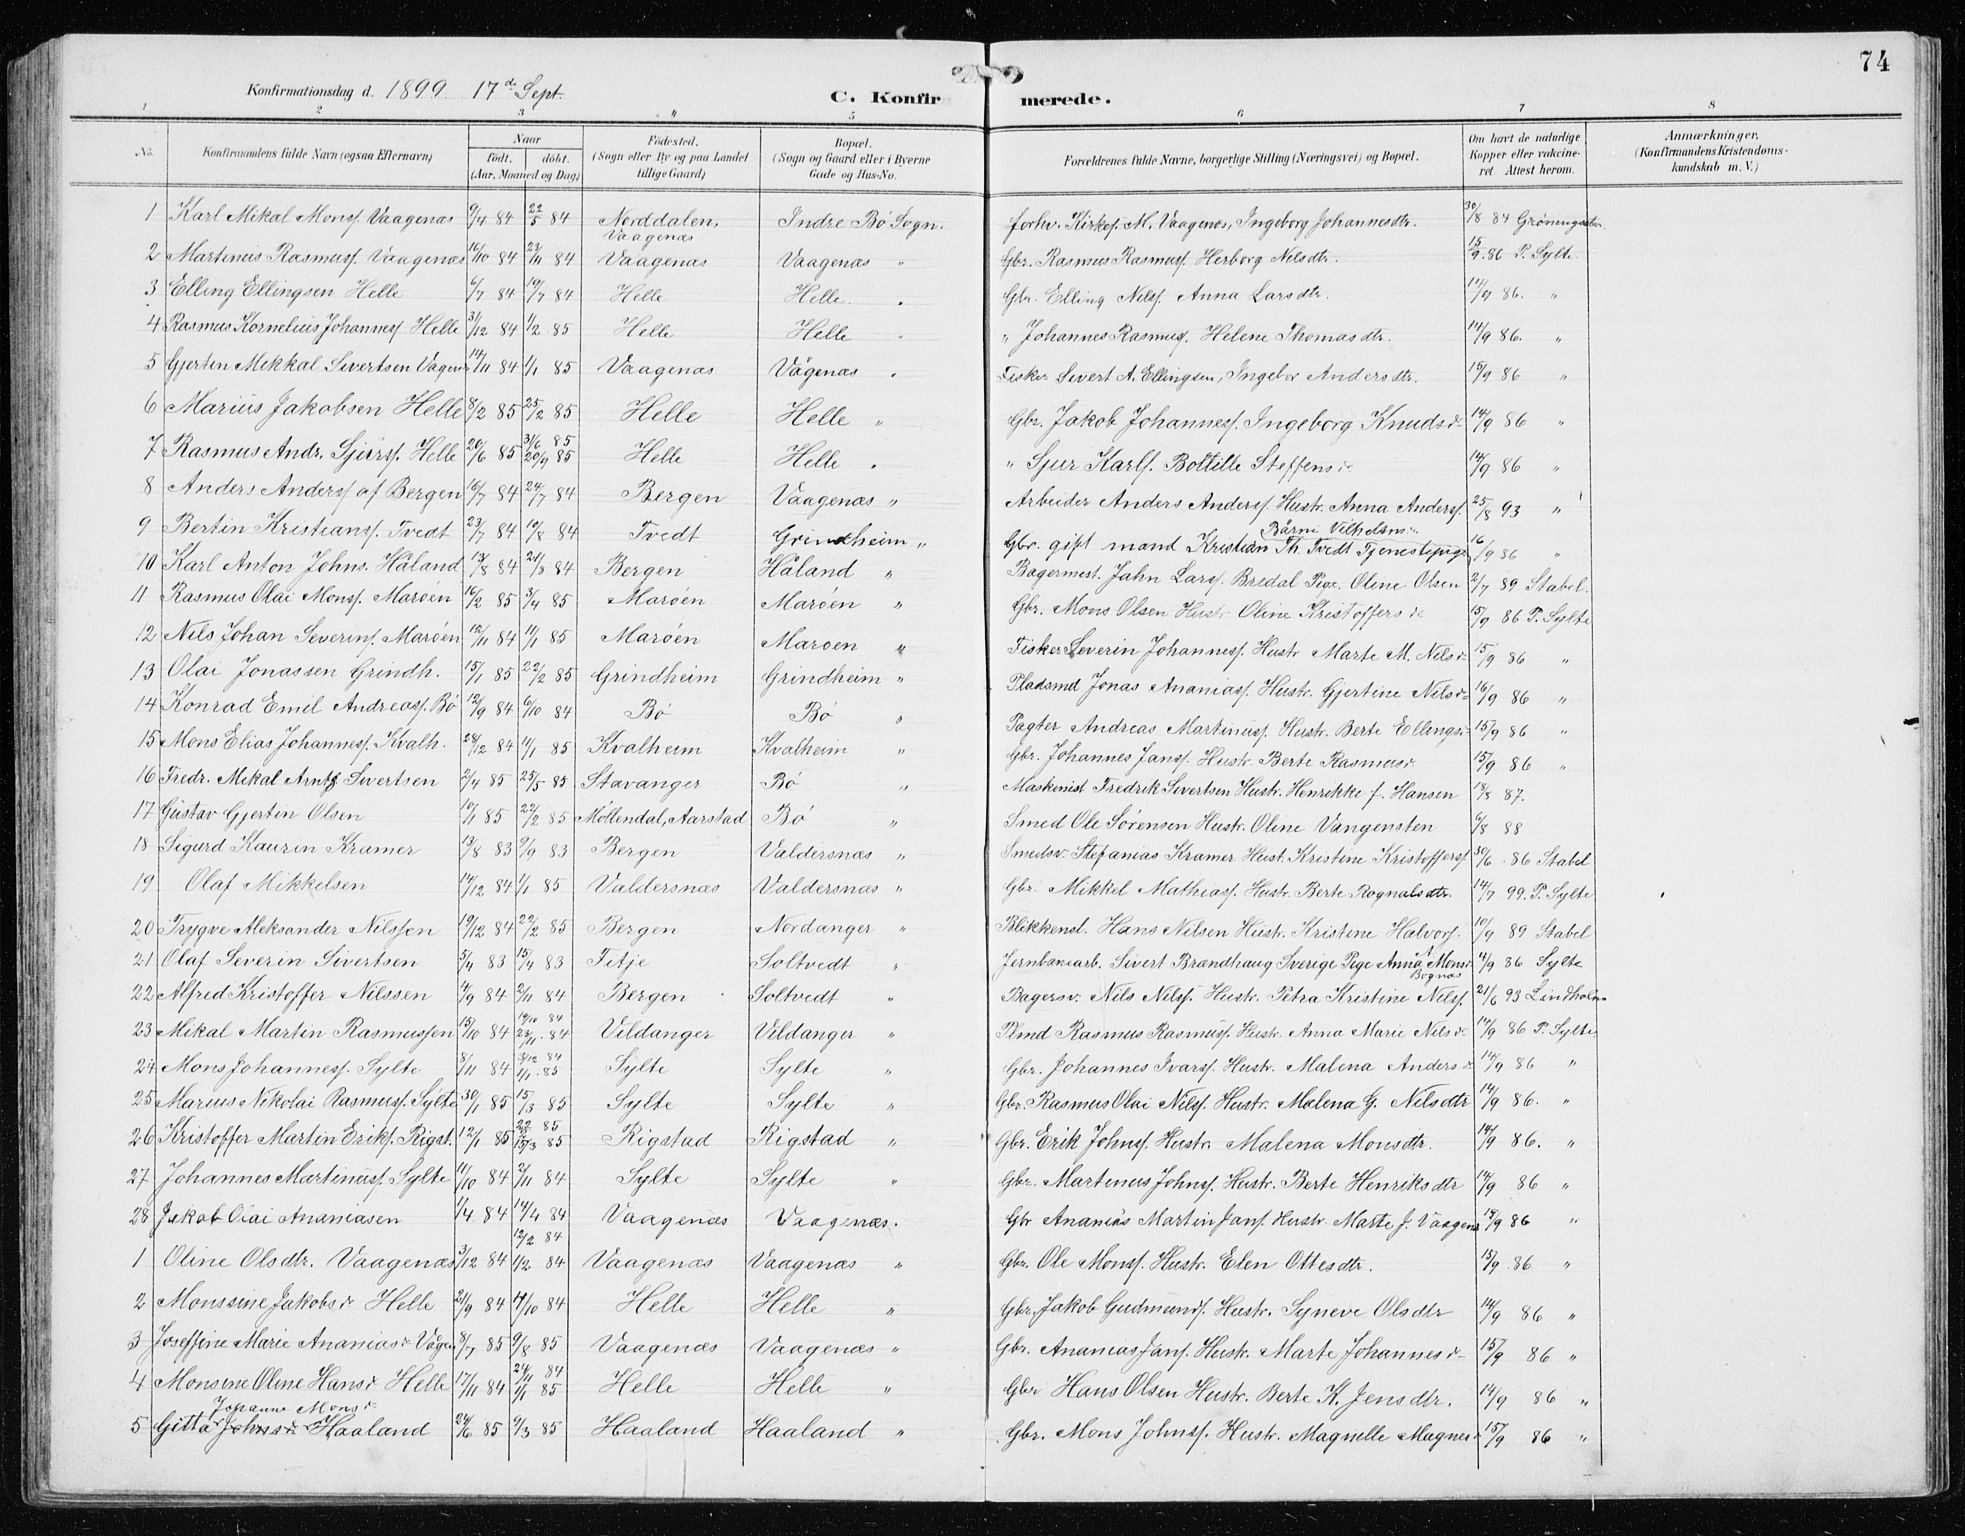 74
Konfirmationsdag d. 1899 17de Sept. C. Konfirmerede.
1 2 3 4 5 6 7 8
No. Konfirmandens fulde Navn (ogsaa Efternavn) Naar födt. döbt. (Aar, Maaned og Dag) Födested. (Sogn eller By og paa Landet tillige Gaard) Bopæl. (Sogn og Gaard eller i Byerne Gade og Hus-No. Forældrenes fulde Navne, borgerlige Stilling (Næringsvei) og Bopæl. Om havt de naturlige Kopper eller vakcineret. Attest herom. Anmærkninger. (Konfirmandens Kristendomskundskab m. V.)
1 Karl Mikal Monss. Vaagenæs 9/4 84 22/5 84 Norddalen, Vaagenæs Indre Bö Sogn. forhv. Kirkes. M. Vaagenæs, Ingeborg Johannesdtr. 30/8 84
2 Martinus Rasmuss. Vaagenæs 16/10 84 23/11 84 Vaagenæs Vaagenæs " Gbr. Rasmus Rasmuss. Herborg Nilsdtr. 15/9 86 P. Sylte
3 Elling Ellingsen Helle 6/7 84 19/7 84 Helle Helle " Gbr. Elling Nilss. Anna Larsdtr. 14/9 86. "
4 Rasmus Kornelius Johanness. Helle 31/12 84 1/2 85 Helle Helle " " Johannes Rasmuss. Helene Thomasdtr. 14/9 86. "
5 Gjerten Mekkal Sivertsen Vagenæs 14/11 84 1/1 85 Vaagenæs Vågenæs " Fisker Sivert A. Ellingsen, Ingebor Andersdtr. 15/9 86 "
6 Marius Jakobsen Helle 8/2 85 25/2 85 Helle Helle " Gbr. Jakob Johanness. Ingeborg Knudsdr 14/9 86 "
7 Rasmus Andr. Sjurs. Helle 20/6 85 3/6 85 20/9 85 Helle Helle " " Sjur Karls. Botille Steffensdr 14/9 86 "
8 Anders Anderss. af Bergen 16/7 84 24/7 84 Bergen Vaagenæs " Arbeider Anders Anderss. Hustr. Anna Anderss. 25/8 93 "
9 Bertin Kristianss. Tvedt 23/7 84 10/8 84 Tvedt Grindheim " Gbr. gift mand Kristian Th. Tvedt Tjenestepige Bårni Vilhelmsdr 16/9 86 "
10 Karl Anton Johns. Håland 13/8 84 24/8 84 Bergen Håland " Bagermest. Jahn Larss. Bredal Pige. Oline Olsen 2/7 89 Stabel.
11 Rasmus Olai Monss. Maröen 16/2 85 3/4 85 Maröen Maröen " Gbr. Mons Olsen Hustr Oline Kristoffersdr 15/9 86 P. Sylte
12 Nils Johan Severins. Maröen 12/11 84 11/1 85 Maröen Maröen " Fisker Severin Johanness. Hustr Marte M. Nilsdr 15/9 86 "
13 Olai Jonassen Grindh. 15/1 85 22/2 85 Grindheim Grindheim " Pladsmd Jonas Ananiass. Hustr. Gjertine Nilsdr 16/9 86 "
14 Konrad Emil Andreass. Bö 12/9 84 6/10 84 Bö Bö " Pagter Andreas Martinuss. Hustr. Berte Ellingsdr 15/9 86 "
15 Mons Elias Johanness. Kvalh. 28/12 84 11/1 85 Kvalheim Kvalheim " Gbr. Johannes Janss. Hustr. Berte Rasmusdr 15/9 86 "
16 Fredr. Mikal Arntz Sivertsen 2/4 85 25/5 85 Stavanger Bö " Maskinist Fredrik Sivertsen Hustr. Henrikke f. Hansen 18/8 87.
17 Gustav Gjertin Olsen 10/1 85 22/2 85 Möllendal, Aarstad Bö " Smed Ole Sörensen Hustr. Oline Vangensten 6/8 88
18 Sigurd Kaurin Kramer 13/8 83 9/9 83 Bergen Valdersnæs " Smedsv. Stefanias Kramer Hust. Kristine Kristofferss. 30/6 86 Stabel
19 Olaf Mikkelsen 14/12 84 1/1 85 Valdersnæs Valdersnæs " Gbr. Mikkel Mathiass. Hustr. Berte Rognalsdtr. 14/7 99. P. Sylte
20 Trygve Aleksander Nilssen 19/12 84 22/2 85 Bergen Nordanger " Blikkensl. Hans Nilsen Hustr. Kristine Halvors. 10/9 89 Stabel
21 Olaf Severin Sivertsen 5/4 83 15/4 83 Titje Soltvedt " Jernbanearb. Sivert Brændhaug Sverige Pige Anna A Monsdr Bognæs 4/9 86 Sylte
22 Alfred Kristoffer Nilssen 4/9 84 2/11 84 Bergen Soltvedt " Bagersv. Nils Nilss. Hustr. Petra Kristine Nilss. 21/6 93 Lindholm
23 Mikal Martin Rasmussen 15/10 84 19/10 84 23/11 84 Vildanger Vildanger " Plmd Rasmus Rasmuss. Hustr. Anna Marie Nilsdr 14/9 86 P. Sylte
24 Mons Johanness. Sylte 8/11 84 3/12 84 1/1 85 Sylte Sylte " Gbr. Johannes Ivarss. Hustr. Malena Andersdr 14/9 86 "
25 Marius Nikolai Rasmuss. Sylte 30/1 85 15/3 85 Sylte Sylte " Gbr. Rasmus Olai Nilss. Hustr. Malena G. Nilsdtr 14/9 86. "
26 Kristoffer Martin Eriks. Rigst. 12/1 85 22/2 85 15/3 85 Rigstad Rigstad " Gbr. Erik Johnss. Hustr. Malena Monsdtr. 14/9 86. "
27 Johannes Martinuss. Sylte 11/10 84 2/11 84 Sylte Sylte " Gbr. Martinus Johnss. Hustr. Berte Henriksdtr 14/9 86 "
28 Jakob Olai Ananiasen 1/4 84 14/4 84 Vaagenæs Vaagenæs. Gbr Ananias Martin Jans. Hustr. Marte J. Vaagenæs 15/9 86 "
1 Oline Olsdtr. Vaagenæs 3/12 84 12/2 84 1/2 84 Vaagenæs Vaagenæs " Gbr. Ole Monss. Hustr. Elen Ottesdtr. 15/9 86 "
2 Monssine Jakobsdr Helle 21/9 84 19/10 84 Helle Helle " Gbr. Jakob Gudmunds. Hustr. Syneve Olsdtr 14/9 86 "
3 Joseffine Marie Ananiasdr Vågen 8/7 85 9/8 85 Vaagenæs Vaagenæs " Gbr. Ananias Jans. Hustr. Marte Johannesdr 15/9 86 "
4 Monsine Oline Hansdr Helle 17/11 84 24/11 84 1/1 85 Helle Helle " Gbr Hans Olsen Hustr. Berte K. Jensdtr. 14/9 86 "
5 Gitta Johanne Monsdr Johnsdr Haaland 24/6 85 9/3 85 Haaland Haaland " Gbr. Mons Johnss. Hustr. Magnelle Magnesdr 15/9 86 "